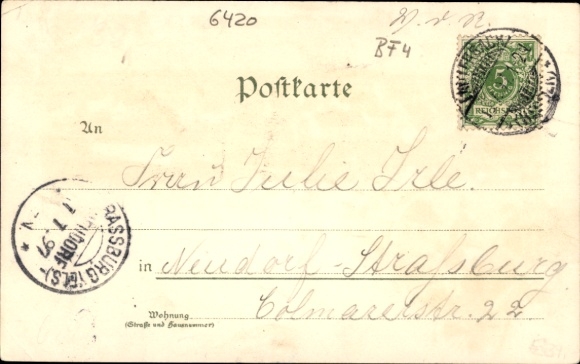 6420
W. v. N.
BF4
5
REICHSPOST
Postkarte
An
Frau Julie Irle.
STRASSBURG (ELS)-
NEUDORF
1 1 97
-V.
in Neudorf-Straßburg
Colmarerstr. 22
Wohnung
(Straße und Hausnummer)